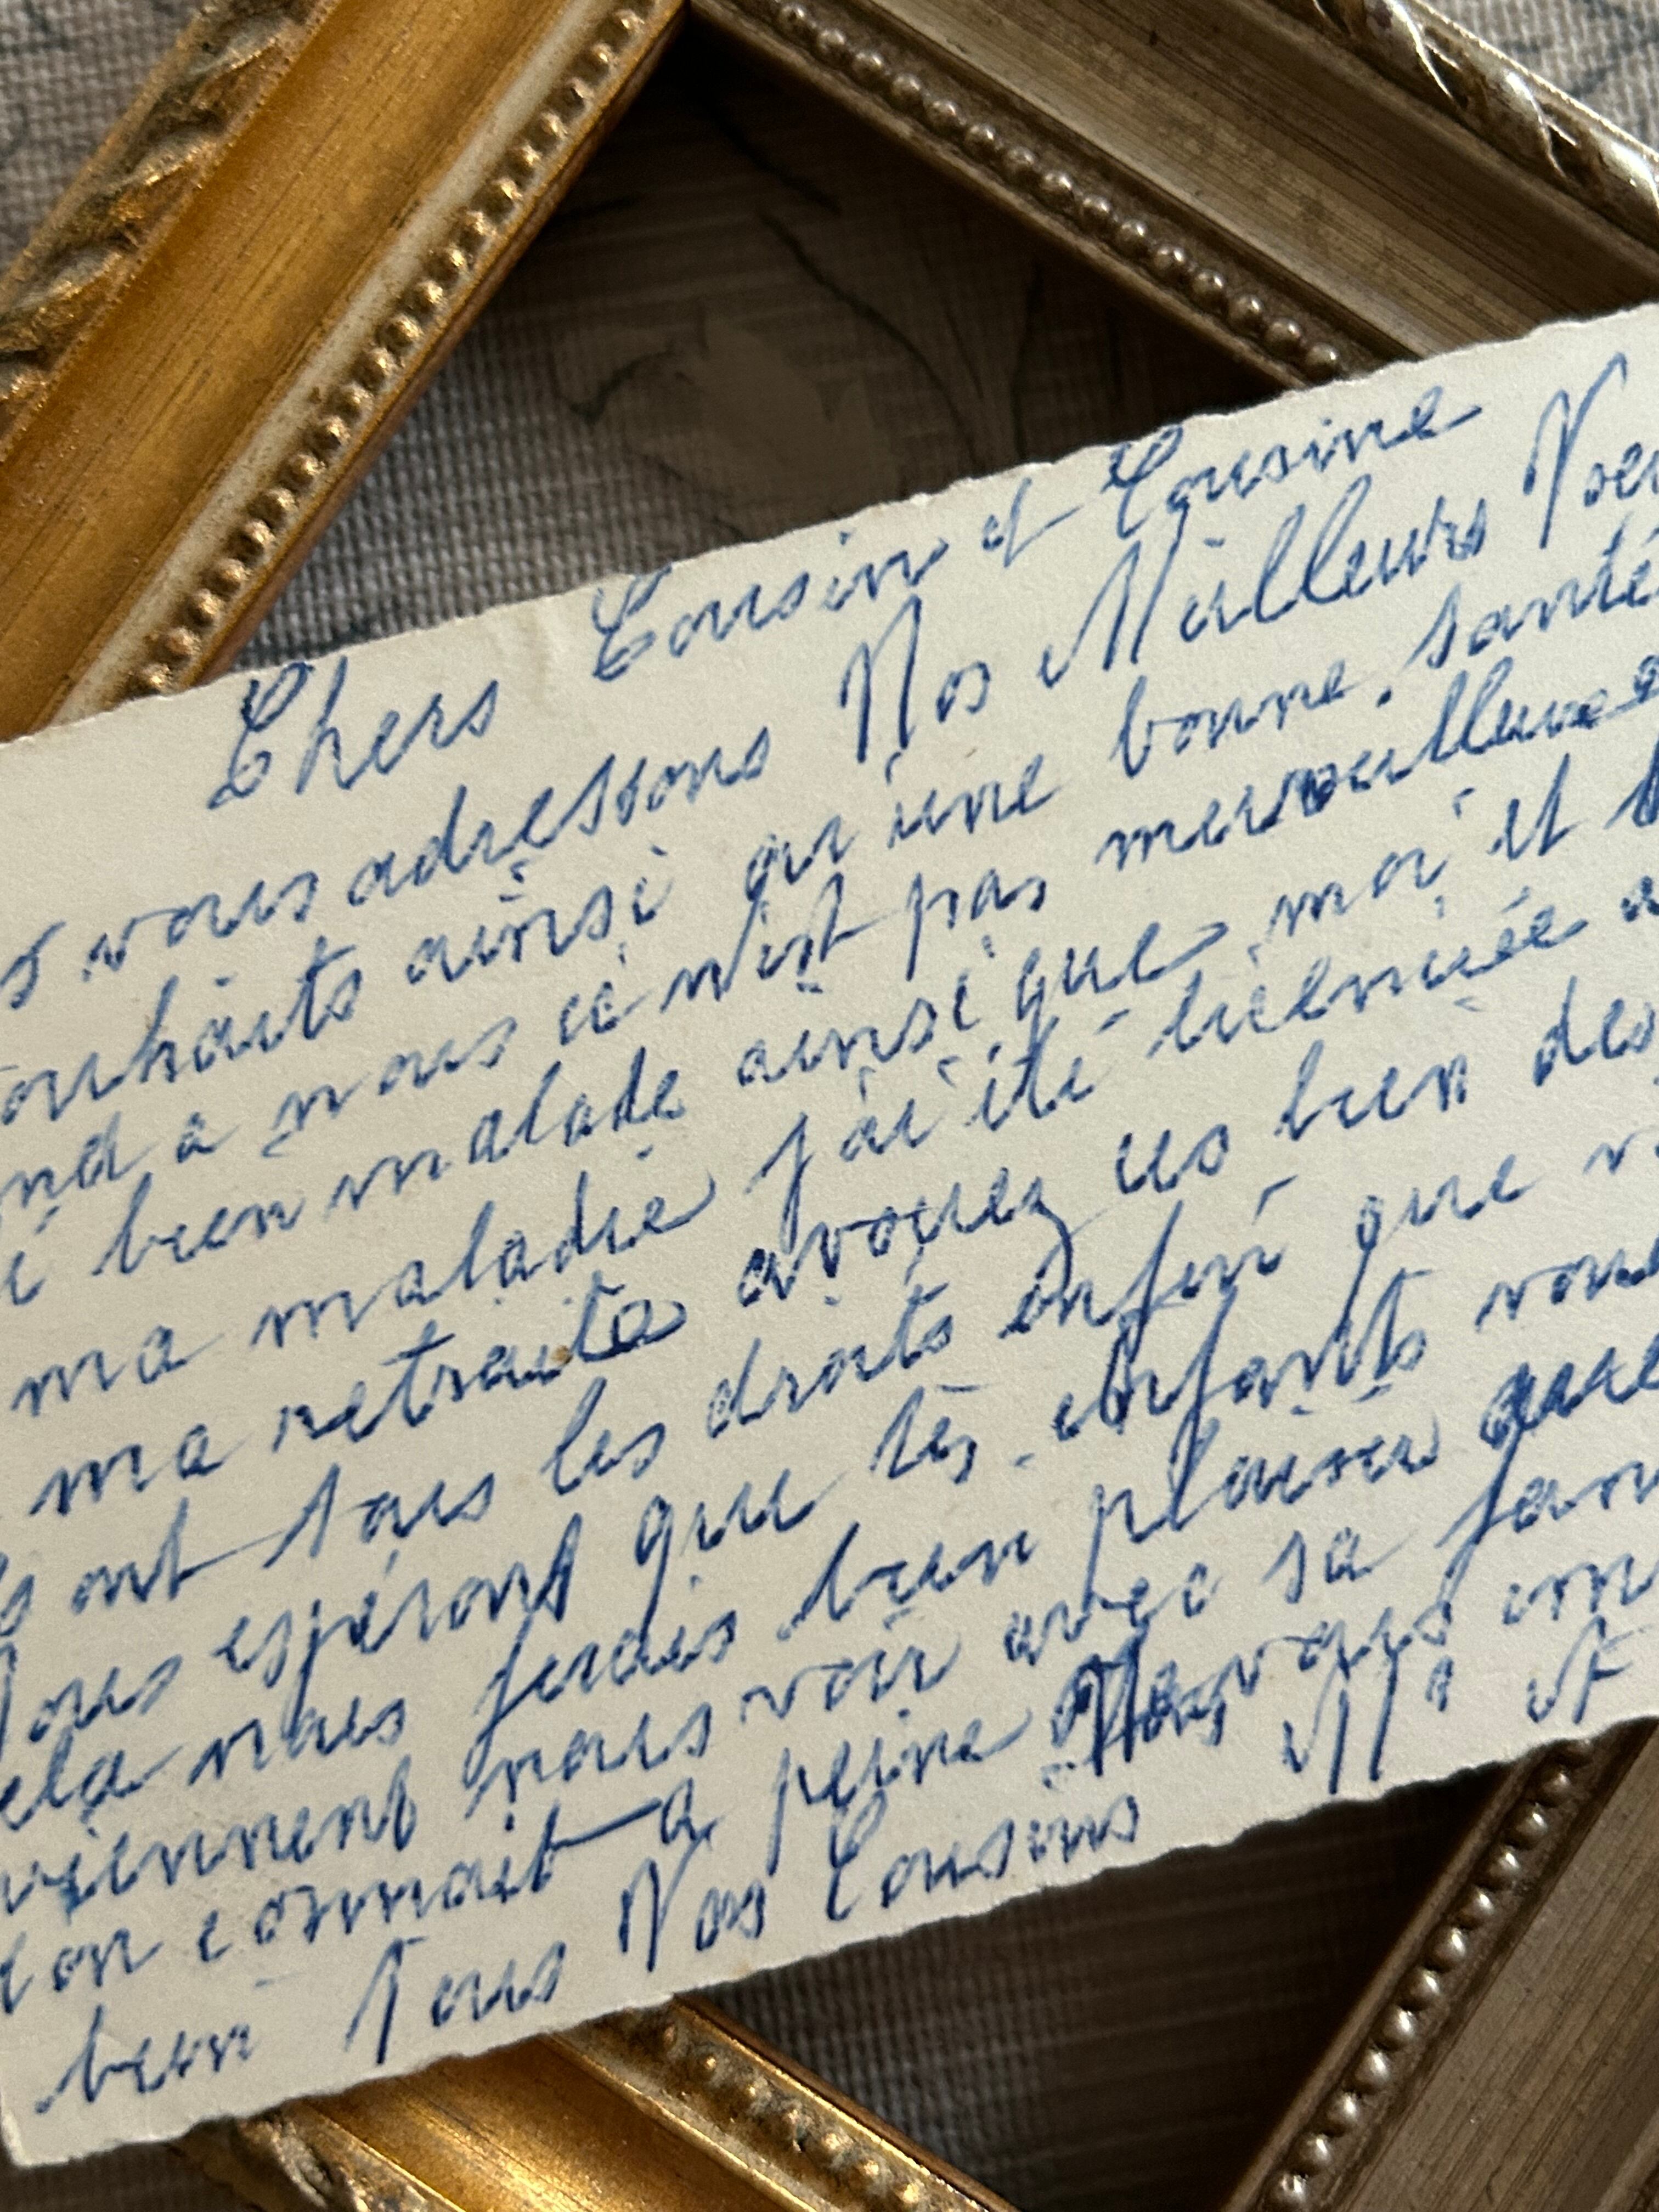 Chers Cousin et Cousine
vous adressons Nos Meilleurs Voeu
ouhaits ainsi qu'une bonne santé
nd a nous ce n'est pas merveilleuse
i bien malade ainsi que moi et
ma maladie j'ai été
ma retraite avouez us bien des
ont tous les droits enfin que
ous espéront que tes enfants vous
ela nous ferais bien plaisir
viennent nous voir avec sa fam
on connait a peine
bien Tous Nos Cousins Mr et